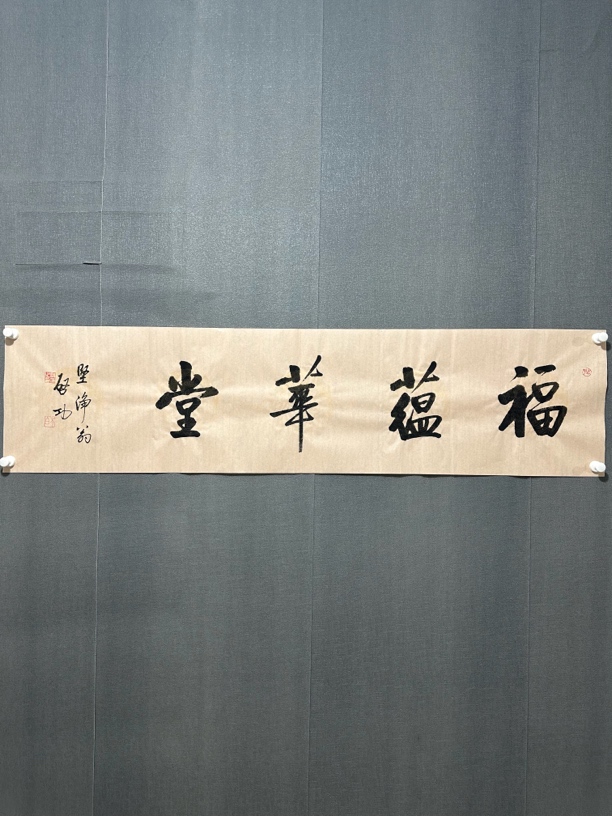 福蘊華堂
堅淨翁
啟功